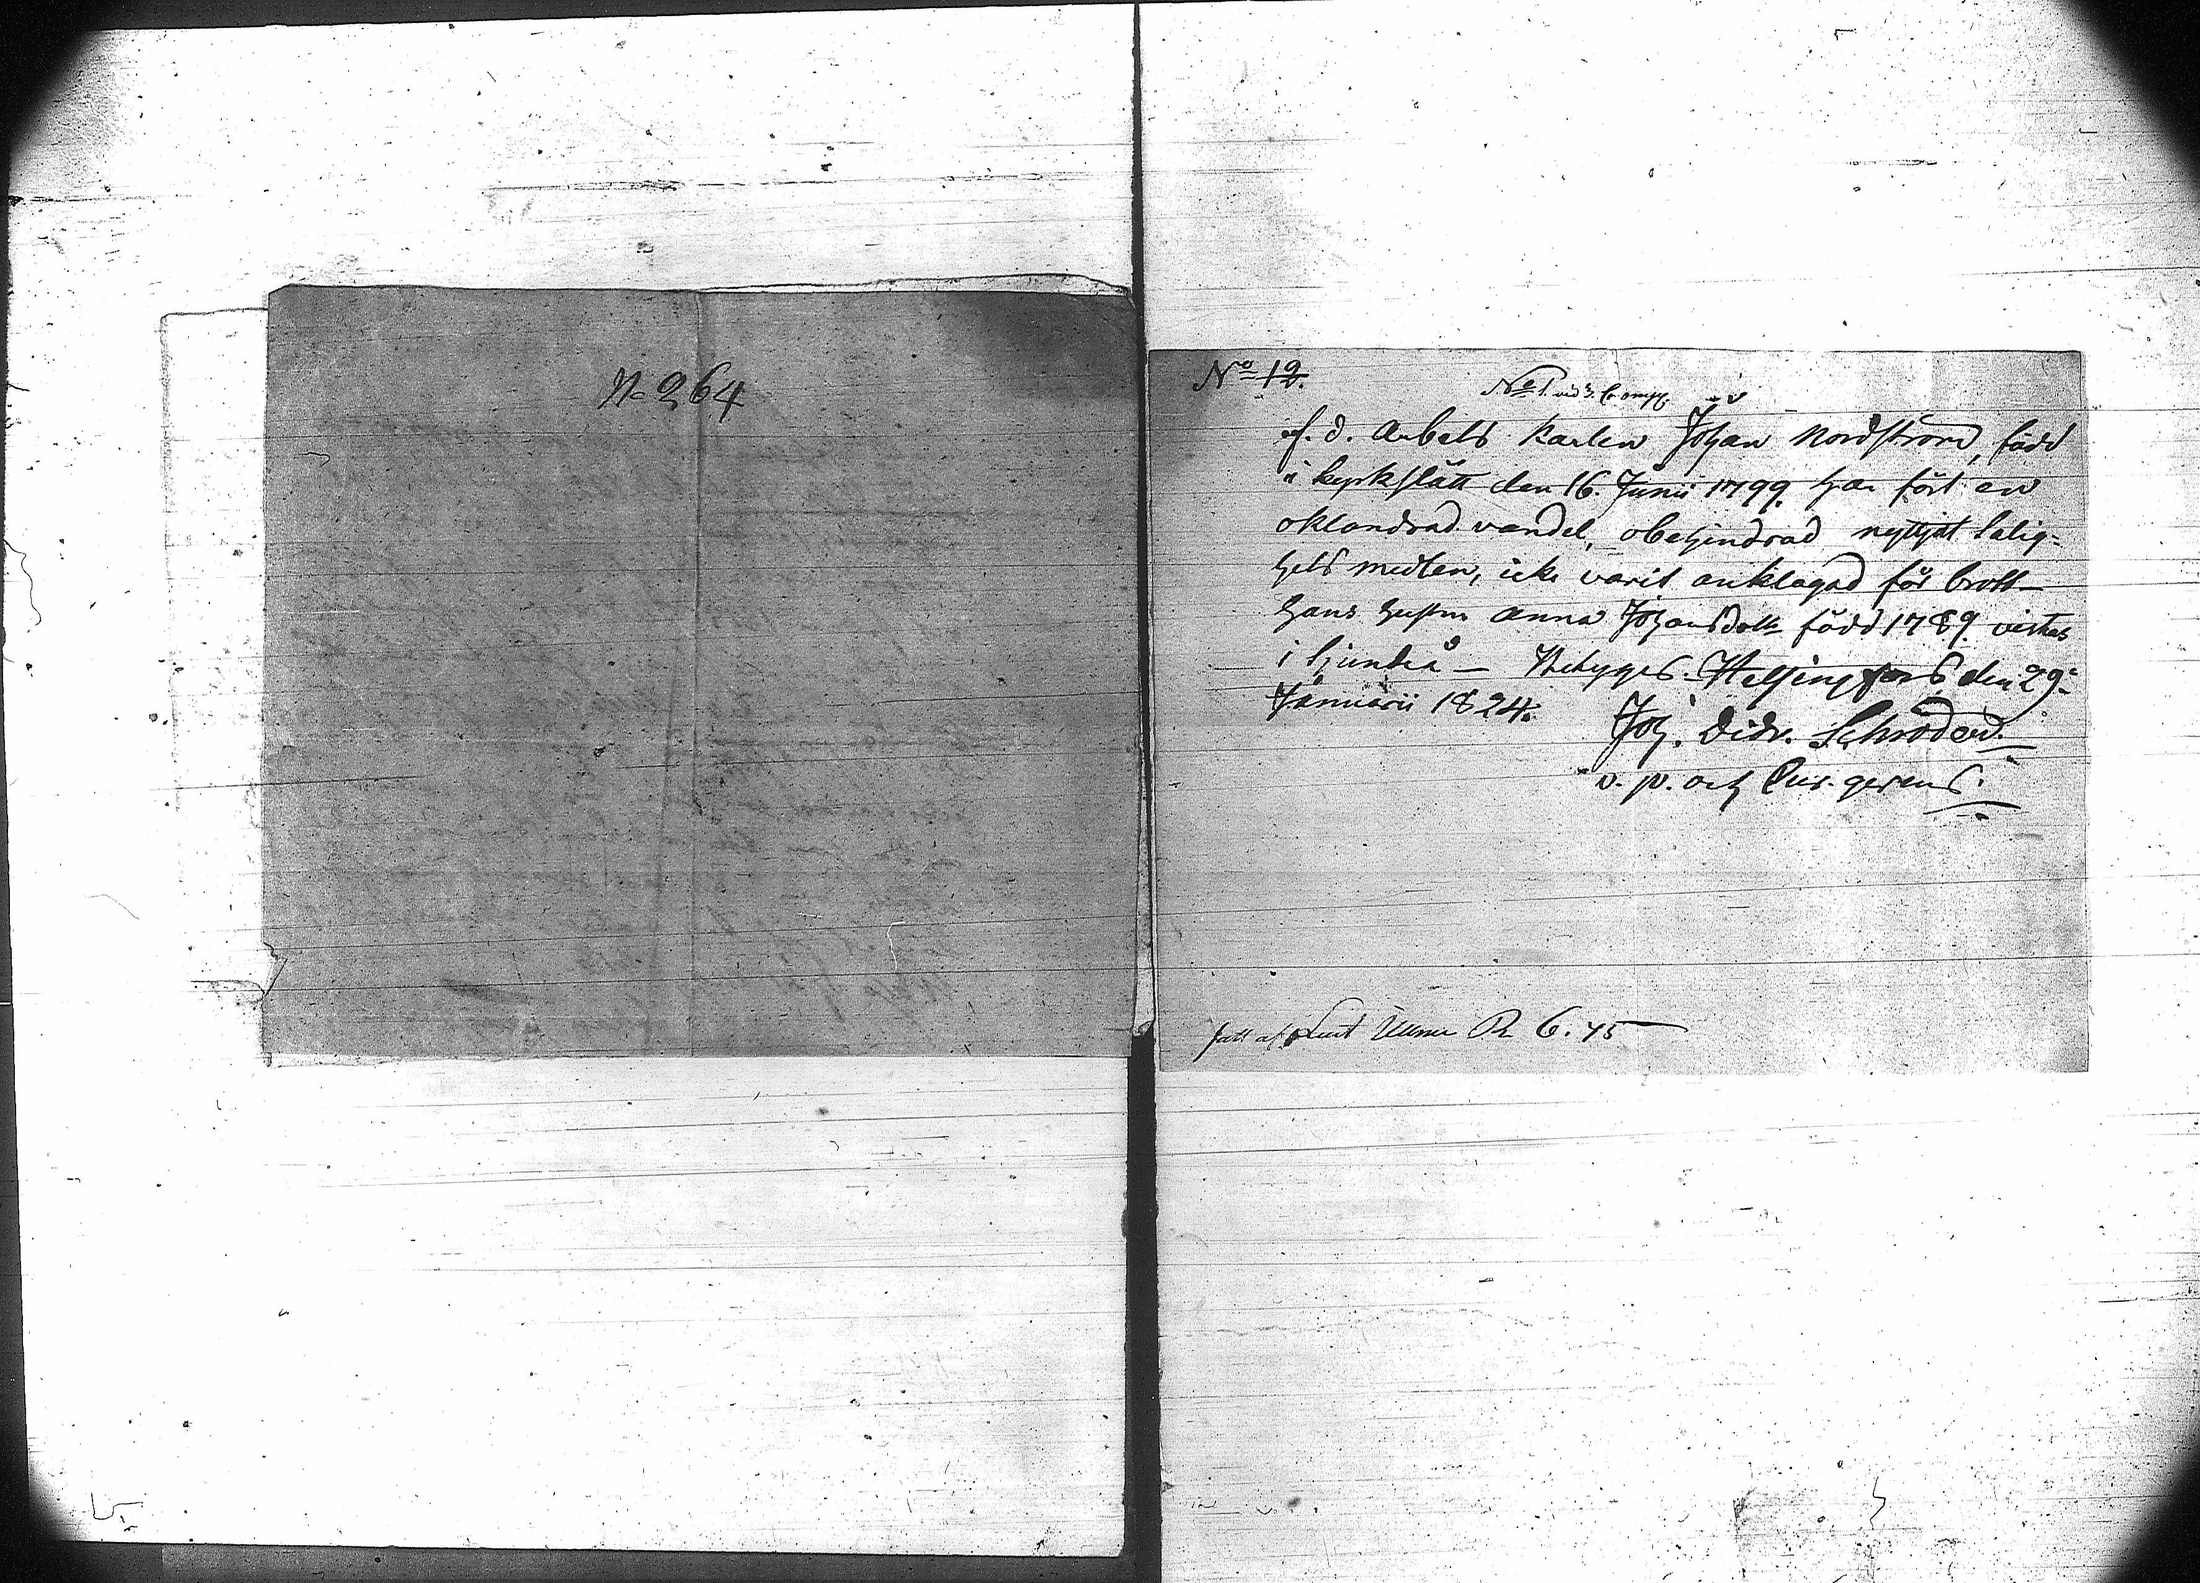 N 264
No 12.
No 1. vid 3. Comp.
f. d. Arbets Karlen Johan Nordström, född
i kyrkslätt den 16. Junii 1799. har fört en
oklandrad vandel, obehindrad nyttjat salig-
hets medlen, icke varit anklagad för brott –
hans hustru Anna Johansdotter född 1789. vistas
i Sjundeå – Betygas. Helsingfors den 29.
Januarii 1824.
Joh. Didr. Schröder.
v. p. och Cur. gerens.
R 6. 45